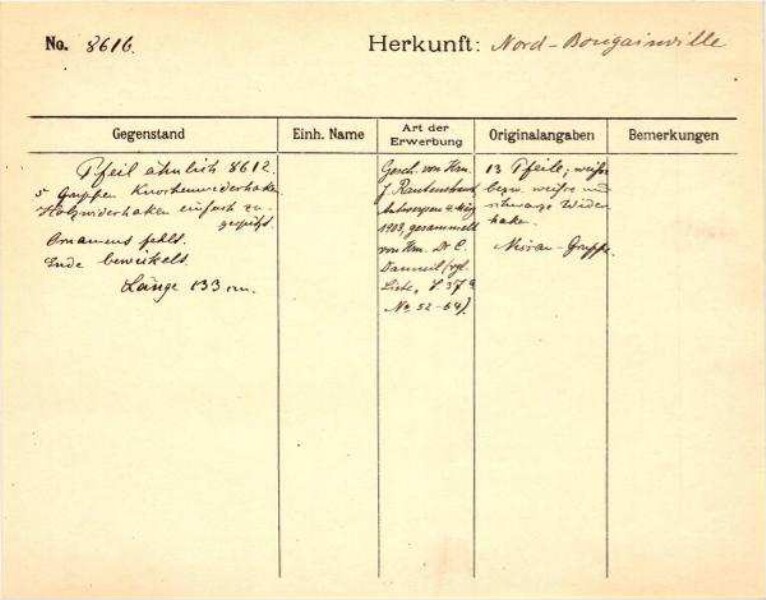 No. 8616. Herkunft: Nord-Bougainville
Gegenstand
Einh. Name
Art der
Erwerbung
Originalangaben
Bemerkungen
Pfeil ähnlich 8612.
5 Gruppen Knochenwiderhaken
Holzwiderhaken einfach zu-
gespitzt.
Ornament fehlt.
Ende bewickelt.
Länge 133 cm.
Gesch. von Hrn.
J.
Antwerpen 2 März
1903, gesammelt
von Hrn. Dr C.
Danneil (vgl.
Liste, S. 37
No 52-64).
13 Pfeile; weisse
bezw. weisse und
schwarze Wider
haken.
Nissan-Gruppe.